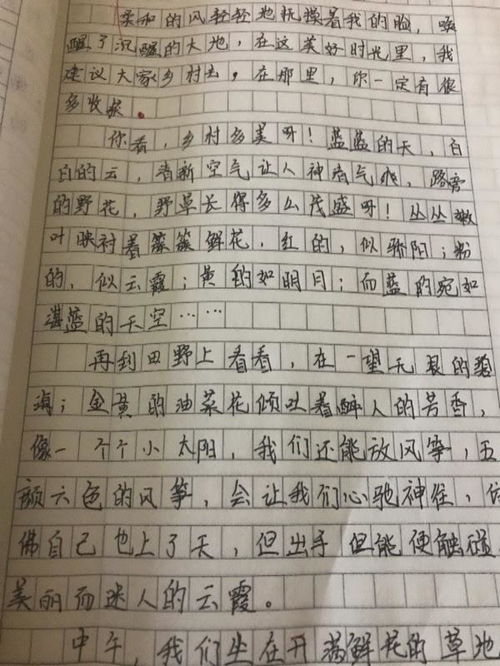 柔和的风轻轻地抚摸着我的脸，唤
醒了沉睡的大地，在这美好时光里，我
建议大家乡村去，在那里，你一定有很
多收获。
你看，乡村多美呀！蓝蓝的天，白
白的云，清新空气让人神清气爽，路旁
的野花，野草长得多么茂盛呀！丛丛嫩
叶映衬着簇簇鲜花，红的，似骄阳；粉
的，似云霞；黄的如明月；而蓝的宛如
湛蓝的天空……
再到田野上看看，在一望无垠的
海；金黄的油菜花倾吐着醉人的芳香，
像一个个小太阳，我们还能放风筝，五
颜六色的风筝，会让我们心驰神往，仿
佛自己也上了天，但出手但能便触碰
美丽而迷人的云霞。
中午，我们坐在开满鲜花的草地